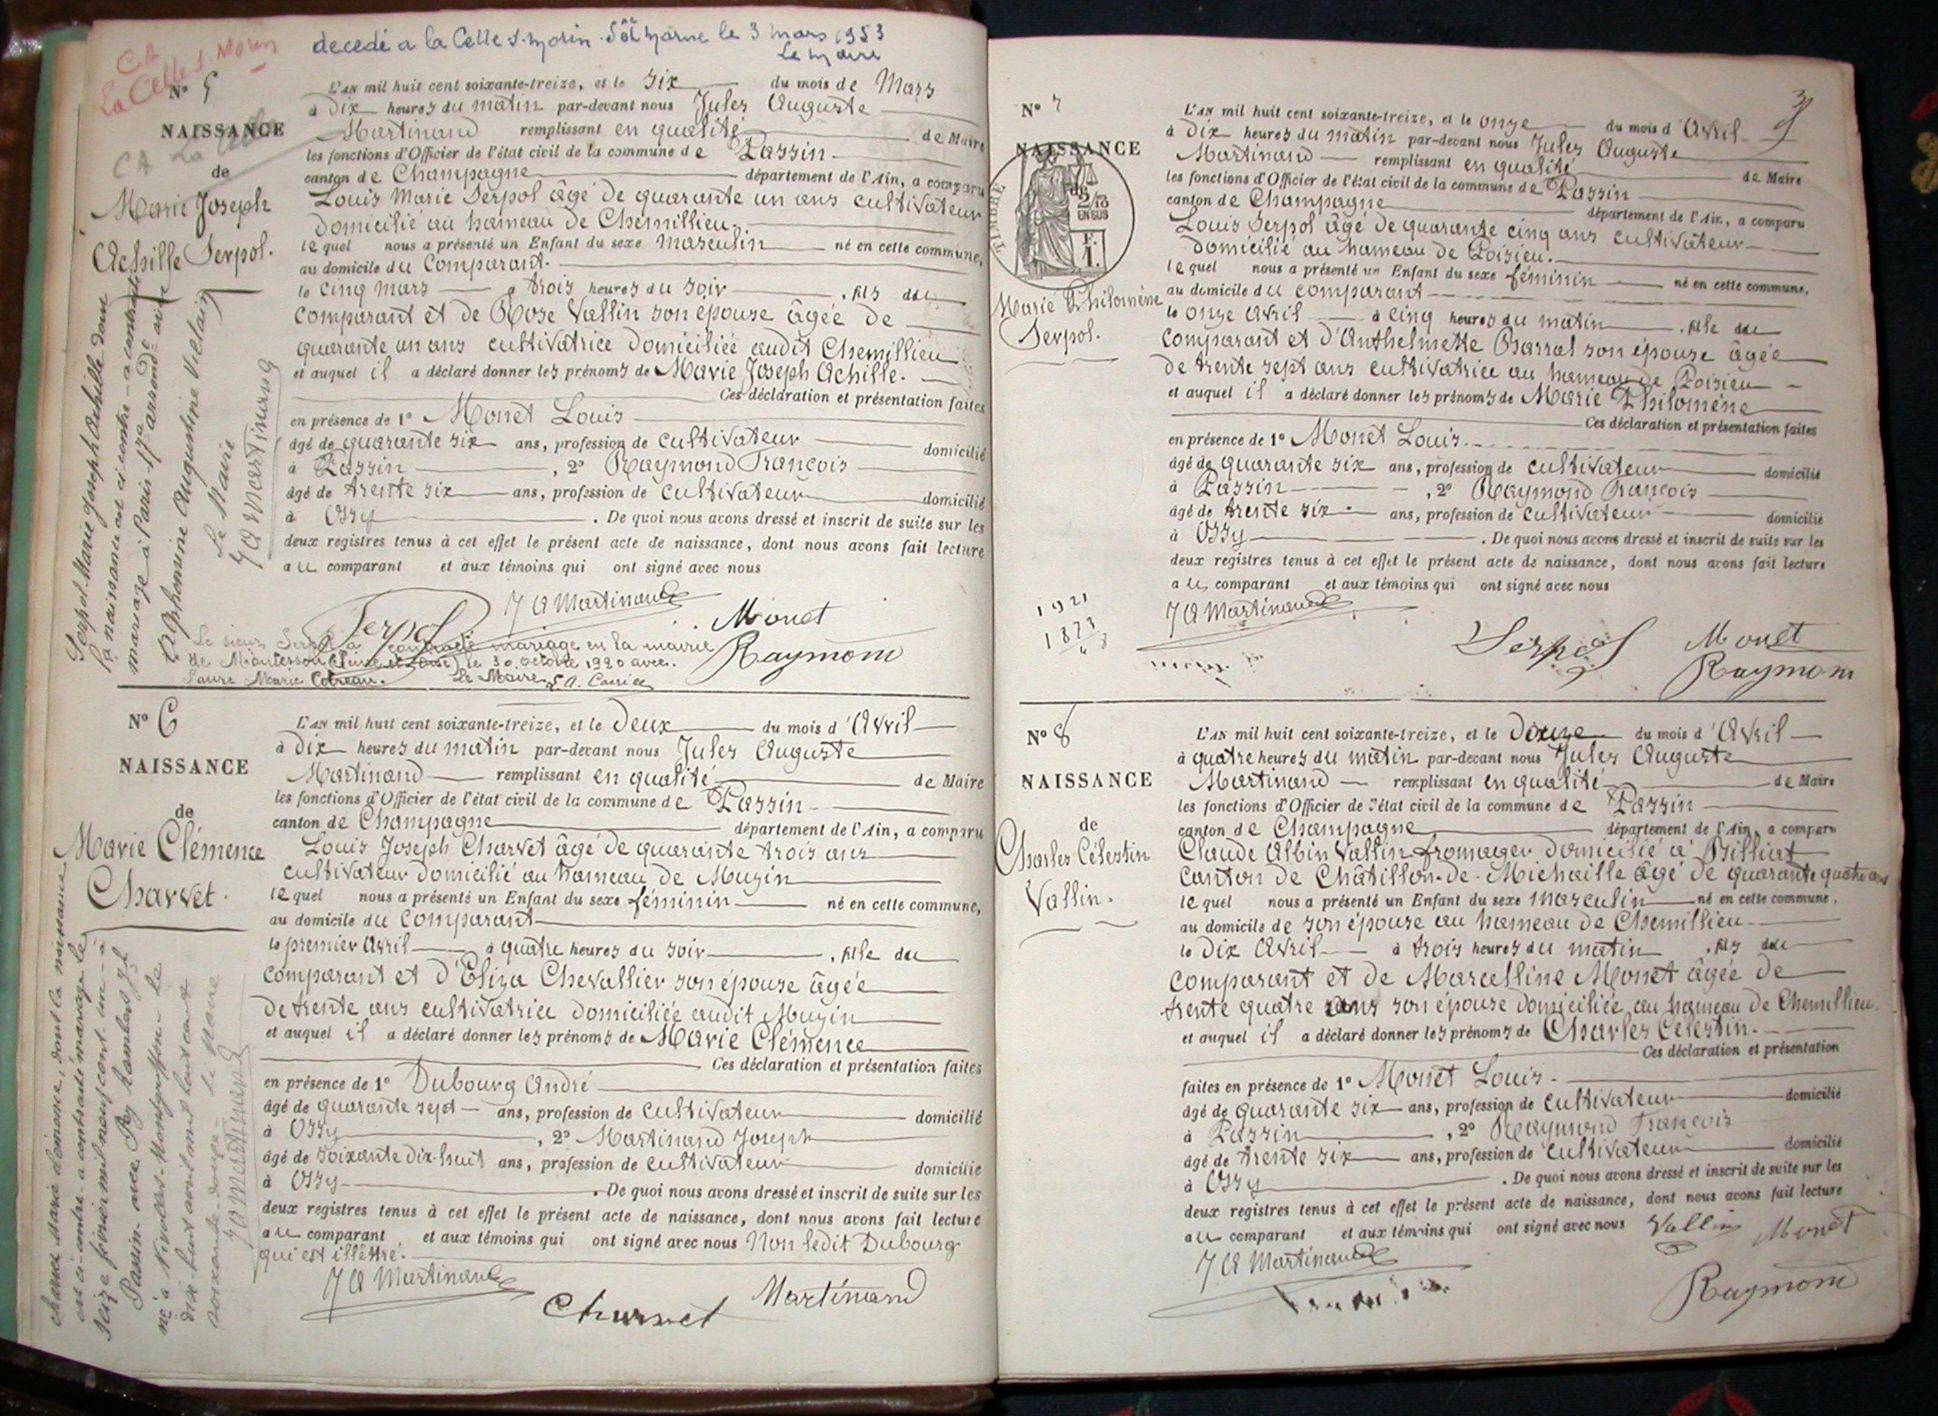 decedé a la Celle s. morin. S et marne le 3 mars 1953
Le maire
CA
La Celle s. Morin
N° 5
NAISSANCE
CA La Celle
de
Marie Joseph
Achille Serpol.
L'AN mil huit cent soixante-treize, et le six du mois de Mars
à dix heures du matin par-devant nous Jules Auguste
Martinand remplissant en qualité de Maire
les fonctions d'Officier de l'état civil de la commune de Passin
canton de Champagne département de l'Ain, a comparu
Louis Marie Serpol âgé de quarante un ans cultivateur
domicilié au hameau de Chemillieu.
lequel nous a présenté un Enfant du sexe masculin né en cette commune,
au domicile du Comparant.
le cinq mars à trois heures du soir, fils du
comparant et de Rose Vallin son épouse âgée de
quarante un ans cultivatrice domiciliée audit Chemillieu
et auquel il a déclaré donner les prénoms de Marie Joseph Achille.
Ces déclaration et présentation faites
en présence de 1° Monet Louis
âgé de quarante six ans, profession de cultivateur domicilié
à Passin, 2° Raymond François
âgé de trente six ans, profession de cultivateur domicilié
à Ossy. De quoi nous avons dressé et inscrit de suite sur les
deux registres tenus à cet effet le présent acte de naissance, dont nous avons fait lecture
au comparant et aux témoins qui ont signé avec nous
J A Martinand
Serpol
Monet
Raymond
Le sieur Serpol a contracté mariage en la mairie
de Montesson (Seine et Oise) le 30 octobre 1920 avec
Laure Marie Cotreau.
Le Maire
Serpol Marie Joseph Achille dont
la naissance est ci-contre a contracté
mariage à Paris arrond. avec
Alphonsine Augustine
Le Maire
J A Martinand
N° 6
NAISSANCE
de
Marie Clémence
Charvet.
L'AN mil huit cent soixante-treize, et le deux du mois d'Avril
à dix heures du matin par-devant nous Jules Auguste
Martinand remplissant en qualité de Maire
les fonctions d'Officier de l'état civil de la commune de Passin
canton de Champagne département de l'Ain, a comparu
Louis Joseph Charvet âgé de quarante trois ans
cultivateur domicilié au hameau de Muzin
lequel nous a présenté un Enfant du sexe féminin né en cette commune,
au domicile du comparant
le premier Avril à quatre heures du soir, fille du
comparant et d'Eliza Chevallier son épouse âgée
de trente ans cultivatrice domiciliée audit Muzin
et auquel il a déclaré donner les prénoms de Marie Clémence
Ces déclaration et présentation faites
en présence de 1° Dubourg André
âgé de quarante sept ans, profession de cultivateur domicilié
à Ossy, 2° Martinand Joseph
âgé de soixante dix-huit ans, profession de cultivateur domicilié
à Ossy. De quoi nous avons dressé et inscrit de suite sur les
deux registres tenus à cet effet le présent acte de naissance, dont nous avons fait lecture
au comparant et aux témoins qui ont signé avec nous Non ledit Dubourg
qui est illétré.
J A Martinand
Charvet
Martinand
Marie Clémence, dont la naissance
est ci-contre a contracté mariage le
seize février mil neuf cent un à
Passin avec
né à le
dix-huit avril mil huit cent
soixante-douze. Le Maire
J A Martinand
3
N° 7
NAISSANCE
TIMBRE
EN SUS
F.
1.
Marie Philomène
Serpol.
L'AN mil huit cent soixante-treize, et le onze du mois d'Avril
à dix heures du matin par-devant nous Jules Auguste
Martinand remplissant en qualité de Maire
les fonctions d'Officier de l'état civil de la commune de Passin
canton de Champagne département de l'Ain, a comparu
Louis Serpol âgé de quarante cinq ans cultivateur
domicilié au hameau de Poisieu.
lequel nous a présenté un Enfant du sexe féminin né en cette commune,
au domicile du comparant
le onze avril à cinq heures du matin, fille du
comparant et d'Anthelmette Barral son épouse âgée
de trente sept ans cultivatrice au hameau de Poisieu
et auquel il a déclaré donner les prénoms de Marie Philomène
Ces déclaration et présentation faites
en présence de 1° Monet Louis.
âgé de quarante six ans, profession de cultivateur domicilié
à Passin, 2° Raymond François
âgé de trente six ans, profession de cultivateur domicilié
à Ossy. De quoi nous avons dressé et inscrit de suite sur les
deux registres tenus à cet effet le présent acte de naissance, dont nous avons fait lecture
au comparant et aux témoins qui ont signé avec nous
J A Martinand
Serpol
Monet
Raymond
1921
1873
N° 8
NAISSANCE
de
Charles Célestin
Vallin.
L'AN mil huit cent soixante-treize, et le douze du mois d'Avril
à quatre heures du matin par-devant nous Jules Auguste
Martinand remplissant en qualité de Maire
les fonctions d'Officier de l'état civil de la commune de Passin
canton de Champagne département de l'Ain, a comparu
Claude Albin Vallin fromager domicilié à Billiat
canton de Châtillon-de-Michaille âgé de quarante quatre ans
lequel nous a présenté un Enfant du sexe masculin né en cette commune,
au domicile de son épouse au hameau de Chemillieu
le dix Avril à trois heures du matin, fils du
comparant et de Marcelline Monet âgée de
trente quatre ans son épouse domiciliée au hameau de Chemillieu.
et auquel il a déclaré donner les prénoms de Charles Célestin.
Ces déclaration et présentation
faites en présence de 1° Monet Louis
âgé de quarante six ans, profession de cultivateur domicilié
à Passin, 2° Raymond François
âgé de trente six ans, profession de cultivateur domicilié
à Ossy. De quoi nous avons dressé et inscrit de suite sur les
deux registres tenus à cet effet le présent acte de naissance, dont nous avons fait lecture
au comparant et aux témoins qui ont signé avec nous Vallin Monet
J A Martinand
Raymond